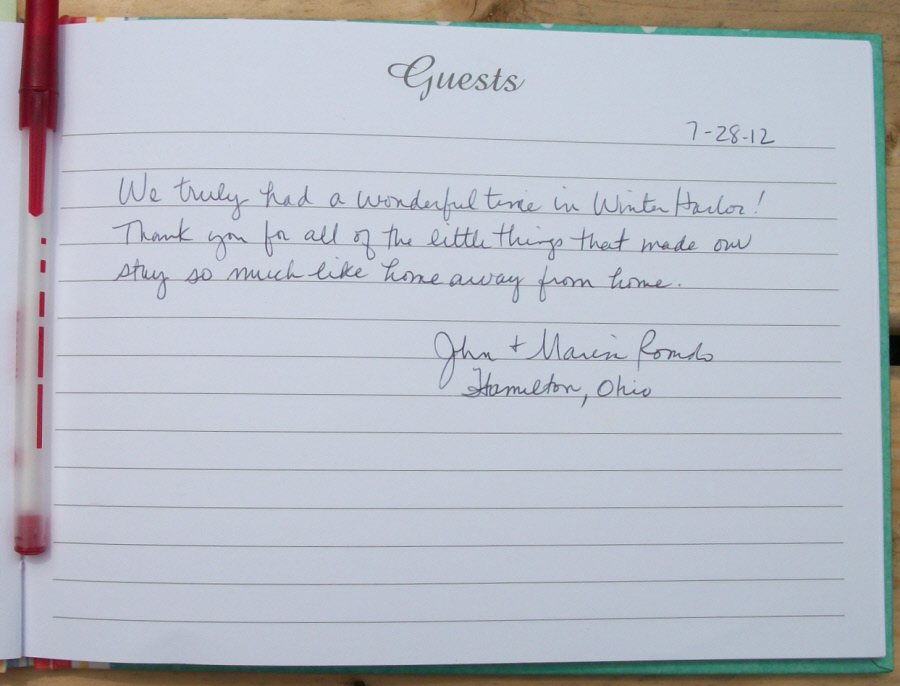 Guests
7-28-12
We truly had a wonderful time in Winter Harbor!
Thank you for all of the little things that made our
stay so much like home away from home.
John +
Hamilton, Ohio